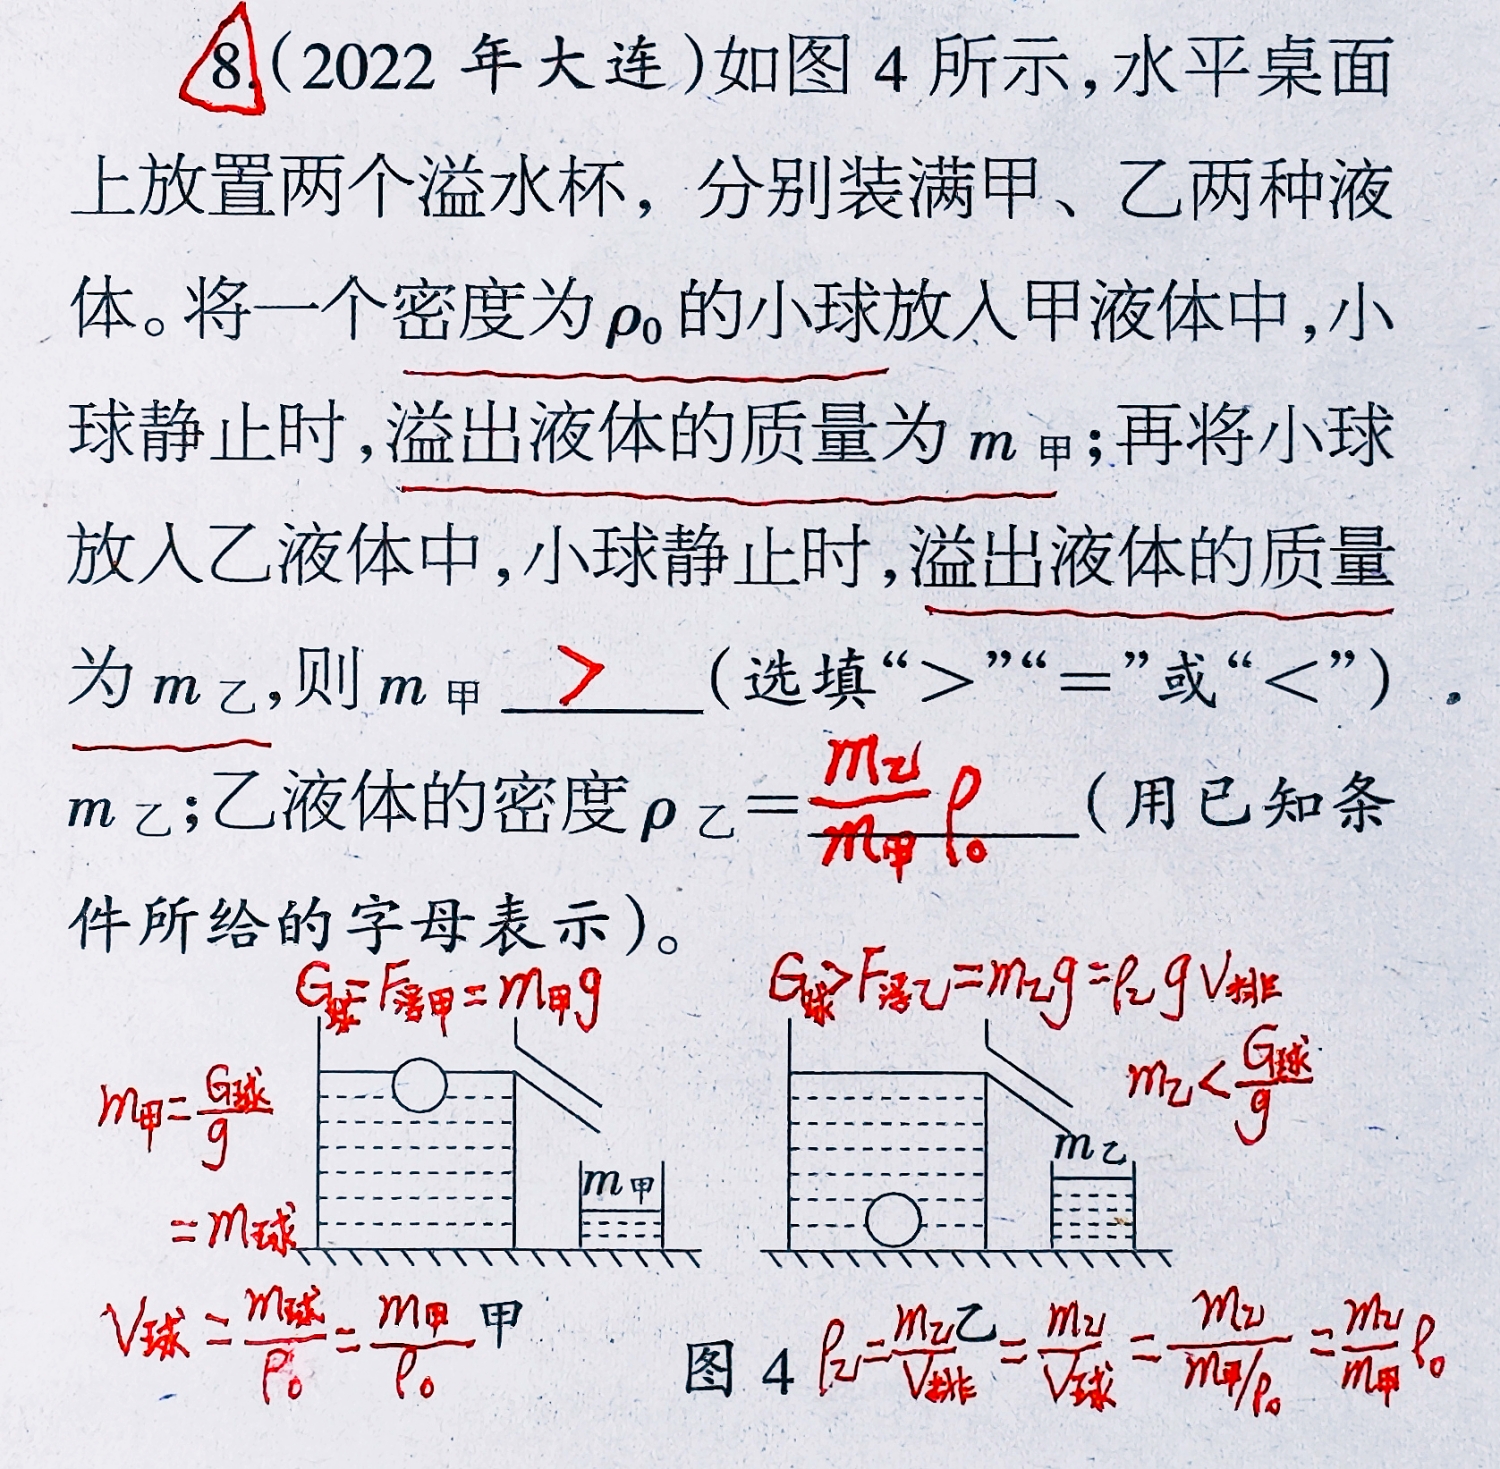 8.(2022 年大连)如图 4 所示,水平桌面
上放置两个溢水杯，分别装满甲、乙两种液
体。将一个密度为ρ₀的小球放入甲液体中,小
球静止时,溢出液体的质量为 m甲;再将小球
放入乙液体中,小球静止时,溢出液体的质量
为 m乙,则 m甲 > (选填“>”“=”或“<”)
m乙;乙液体的密度ρ乙= m乙/m甲 ρ₀ (用已知条
件所给的字母表示)。
G球=F浮甲=m甲g
G球>F浮乙=m乙g=ρ乙gV排
m甲=G球/g
m乙<G球/g
=m球
m甲
m乙
V球=m球/ρ₀=m甲/ρ₀
甲
乙
图 4
ρ乙=m乙/V排=m乙/V球=m乙/(m甲/ρ₀)=m乙/m甲 ρ₀